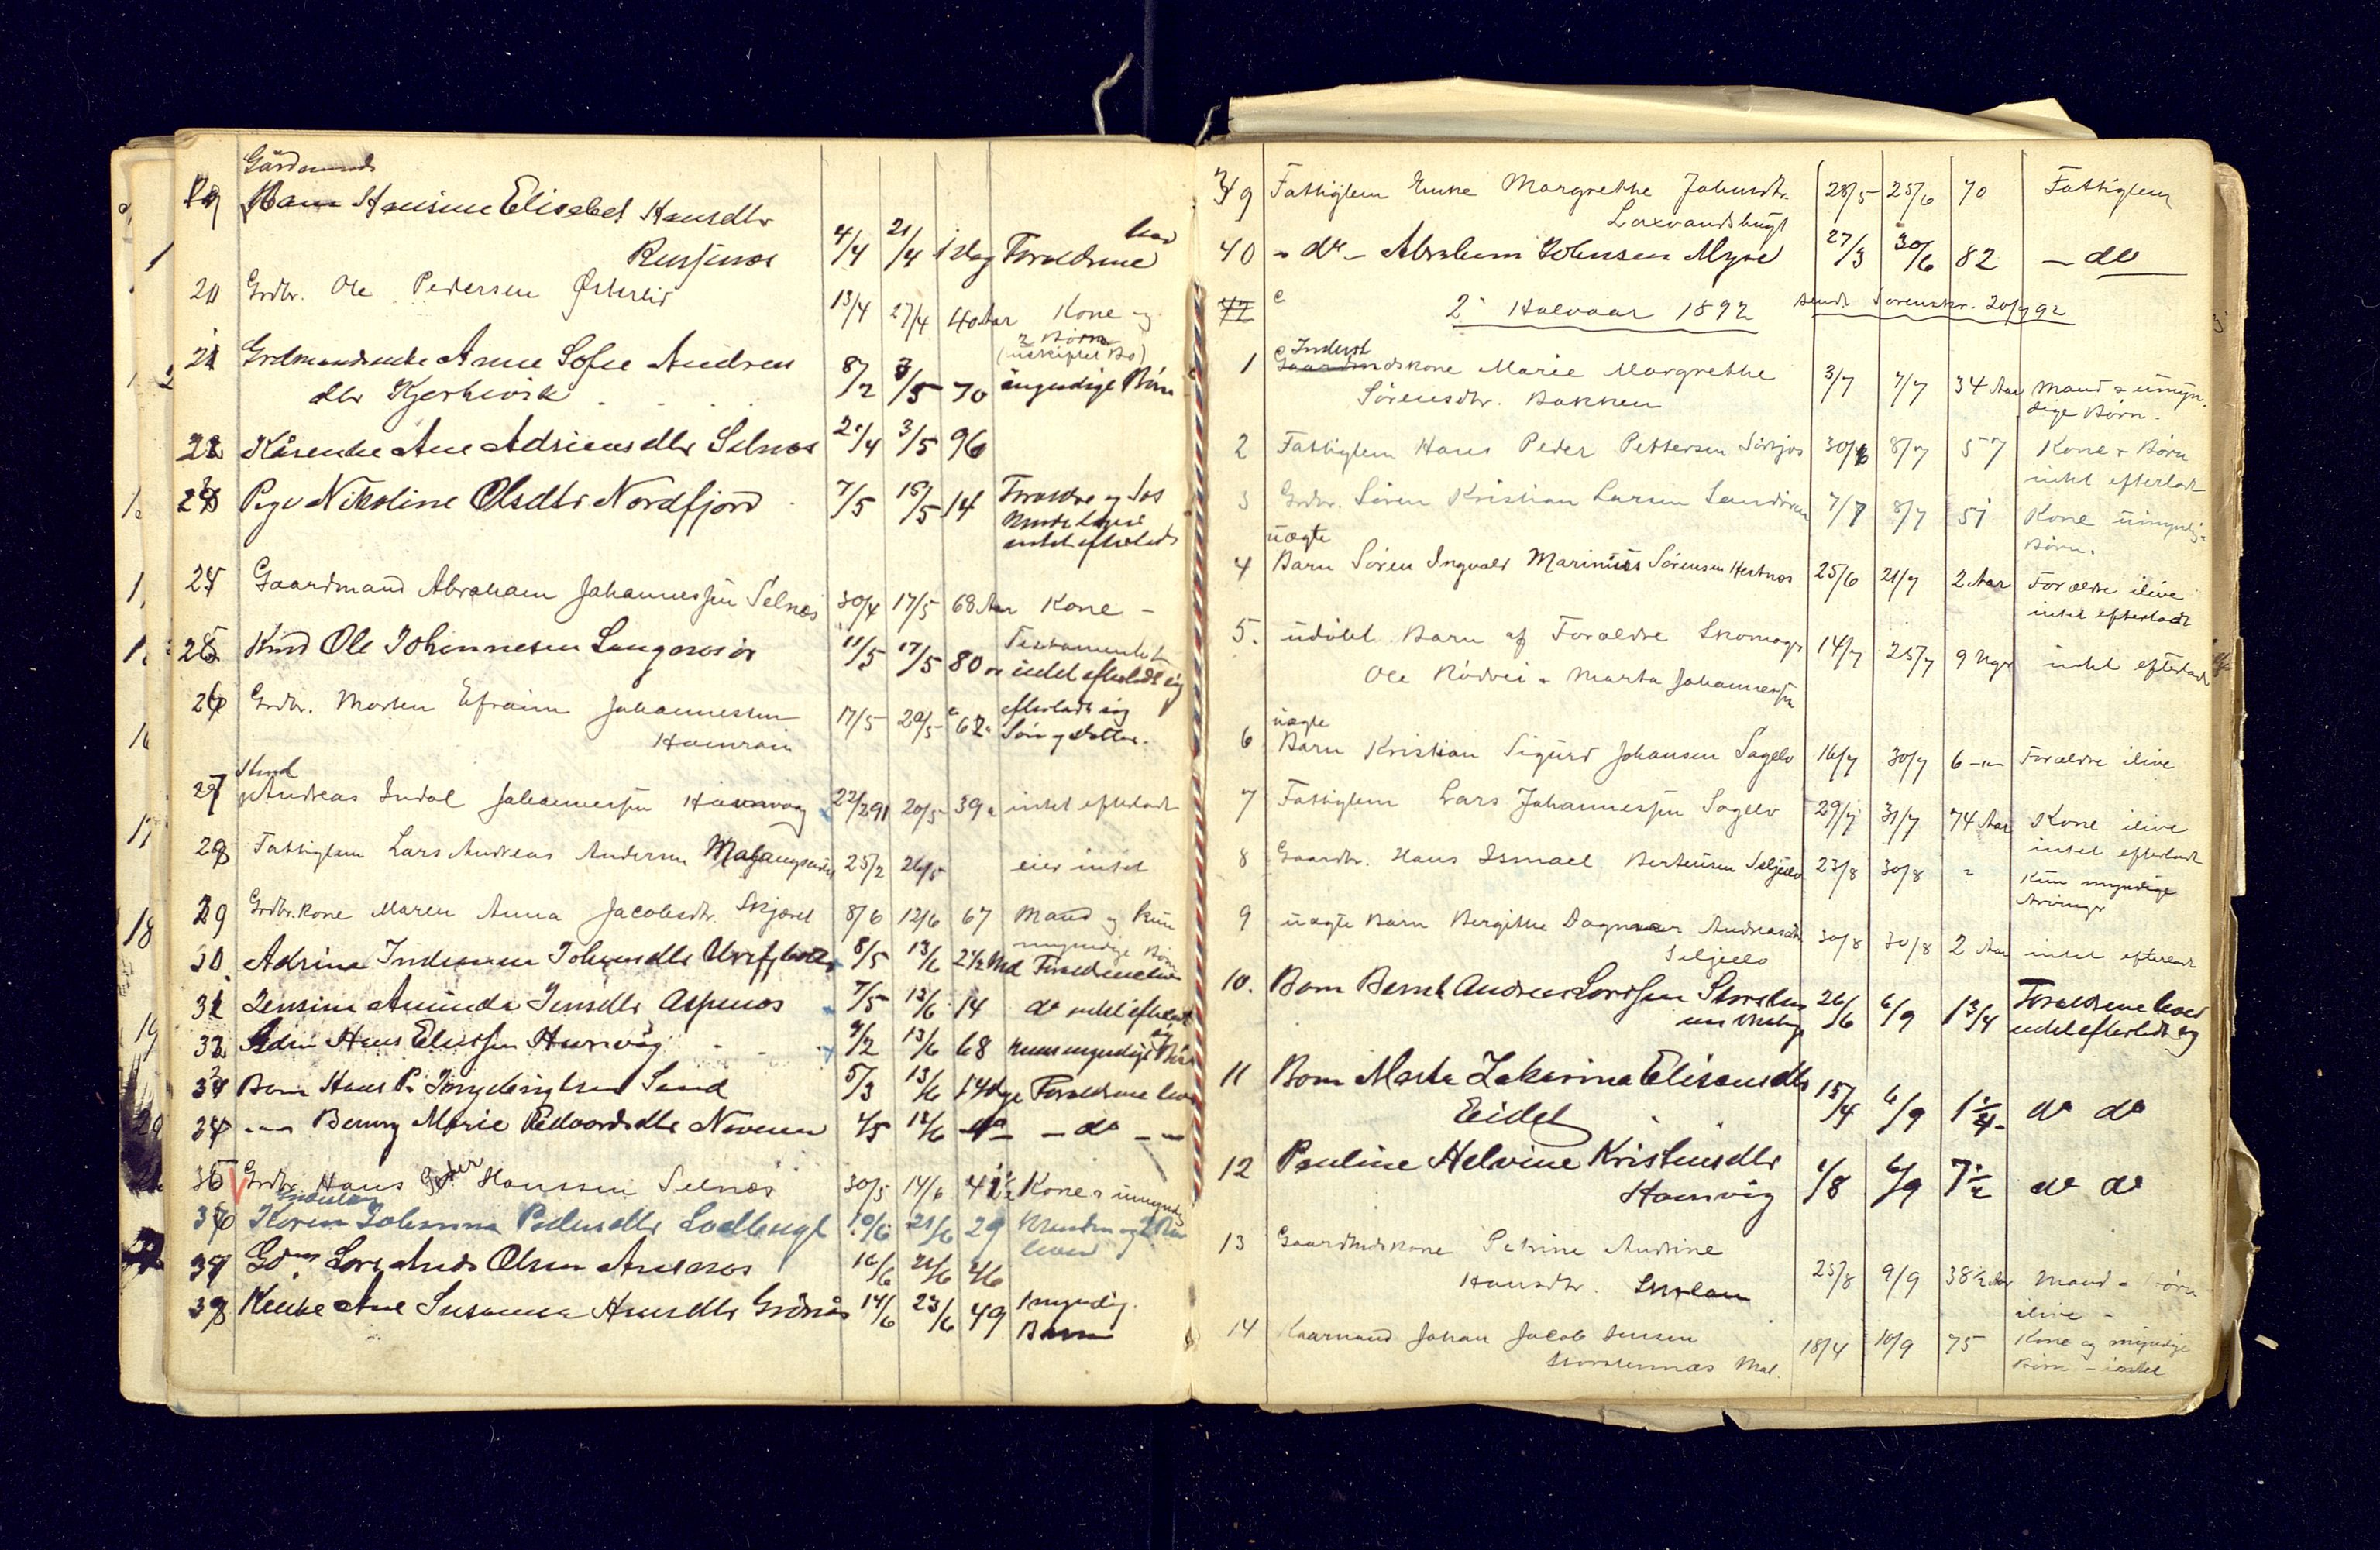 Gårdmands
19 Barn Hansine Elisabet Hansdtr
Russenes 4/4 21/4 1 Dag Forældrene lever
20 Grdbr. Ole Pedersen Østerlid 13/4 27/4 40 Aar Kone og
2 Børn
(uskiftet Bo)
21 Grdmandsenke Anne Sofie Andreas
dtr Kjerkevik 8/2 3/5 70 myndige Børn
22 Kårenke Ane Adriansdtr Selnæs 21/4 3/5 96
23 Pige Nikoline Olsdtr Nordfjord 7/5 15/5 14 Forældre og Søs
kende lever
intet efterladt
24 Gaardmand Abraham Johannessen Selnæs 30/4 17/5 68 Aar Kone -
25 Knd Ole Johannesen Langnesør 11/5 17/5 80 Testamente
intet efterladt sig
26 Grdbr. Morten Efraim Johannessen
Hamran 17/5 20/5 62 efterladt sig
Søn og Datter.
27 Andreas Indal Johannessen Havnvaag 22/2 91 20/5 39 a intet efterladt
28 Fattiglem Lars Andreas Andersen Malangseidet 25/2 26/5 eier intet
29 Grdbr.kone Maren Anna Jacobsdtr. Skjæret 8/6 12/6 67 Mand og kun
myndige Børn
30 Adrine Indianna Johansdtr 8/5 13/6 2 1/2 Md Forældrene lever
31 Jensine Aminda Jensdtr Aspenes 7/5 13/6 14 do intet efterladt
sig
32 Hans Eliassen Havnvåg 4/2 13/6 68 kun myndige Børn
33 Barn Hans P. Ingebrigtsen Sand 5/3 13/6 14 dge Forældrene lever
34 - Benny Marie Edvardsdtr Navaren 4/5 12/6 - do -
35 Grdbr Hans Peder Hanssen Selnæs 30/5 14/6 41 1/2 Kone & umynd
36 Karen Johanna Pedersdtr Lodbugt 10/6 21/6 29 Manden og 2 Børn
lever
37 Gdm Lars Ands Olsen Ansnes 16/6 21/6 46
38 Kenke Ane Susanna Hansdtr Grønås 14/6 23/6 49 1 myndig.
Barn
39 Fattiglem Enke Margrethe Johnsdtr.
Laxvandsbugt 28/5 25/6 70 Fattiglem
40 - do - Abraham Johnsen Myre 27/3 30/6 82 - do
2' Halvaar 1892 Sendt Sorenskr. 20/7 92
Inderst
1 Gaardmdskone Marie Margrethe
Sørensdtr. Bakken 3/7 7/7 34 Aar Mand & umyn-
dige Børn.
2 Fattiglem Hans Peder Pettersen Sørkjos 30/6 8/7 57 Kone & Børn
intet efterladt
3 Grdbr. Søren Kristian Larsen Sandøren 7/7 8/7 51 Kone umyndige
Børn.
uægte
4 Barn Søren Ingvald Marinius Sørensen Hestnes 25/6 21/7 2 Aar Forældre ilive
intet efterladt
5. udöbt Barn af Forældre Skomager
Ole Rødvei & Marta Johannessen 14/7 25/7 9 Uger intet efterladt
uægte
6 Barn Kristian Sigurd Johansen Sagelv 16/7 30/7 6 - Forældre ilive
7 Fattiglem Lars Johannessen Sagelv 29/7 31/7 74 Aar Kone ilive
intet efterladt
8 Gaardbr. Hans Ismael Berteusen Seljelv 23/8 30/8 " Kun myndige
Arvinger
9 uægte Barn Bergitte Dagmar Andreasdtr
Seljelv 30/8 30/8 2 Aar intet efterladt
10. Barn Bernt Andreas Larssen Storsten
nes 26/6 6/9 1 3/4 Forældrene lever
intet efterladt sig
11 Barn Marta Zakarina Elisæusdtr
Eidet 15/4 6/9 1 1/4 do do
12 Pauline Helvine Kristensdtr
Hamvig 1/8 6/9 7 1/2 do do
13 Gaardmdskone Petrine Andrine
Hansdtr. 25/8 9/9 38 1/2 Aar Mand & Børn
ilive -
14 Kaarmand Johan Jacob Jensen
Storstennæs Mal. 18/4 10/9 75 Kone og myndige
Børn - intet